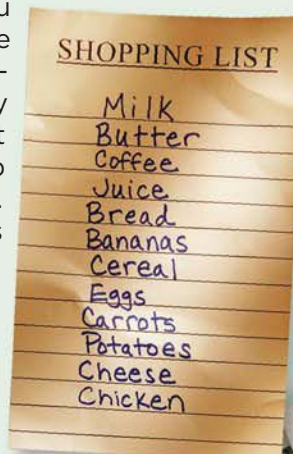 SHOPPING LIST
Milk
Butter
Coffee
Juice
Bread
Bananas
Cereal
Eggs
Carrots
Potatoes
Cheese
Chicken